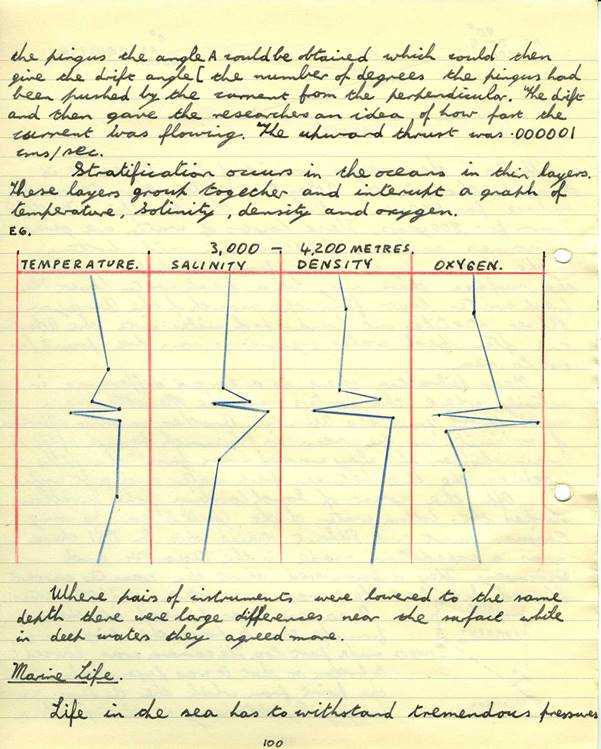 the pingus the angle A could be obtained which could then
give the drift angle [ the number of degrees the pingus had
been pushed by the current from the perpendicular. The drift
and then gave the researches an idea of how fast the
current was flowing. The upward thrust was .000001
cms/sec.
Stratification occurs in the oceans in thin layers.
These layers group together and interupt a graph of
temperature, Solinity, density and oxygen.
EG.
3,000 — 4,200 METRES.
TEMPERATURE. SALINITY DENSITY OXYGEN.
Where pairs of instruments were lowered to the same
depth there were large differences near the surfact while
in deep waters they agreed more.
Marine Life.
Life in the sea has to withstand tremendous pressures
100